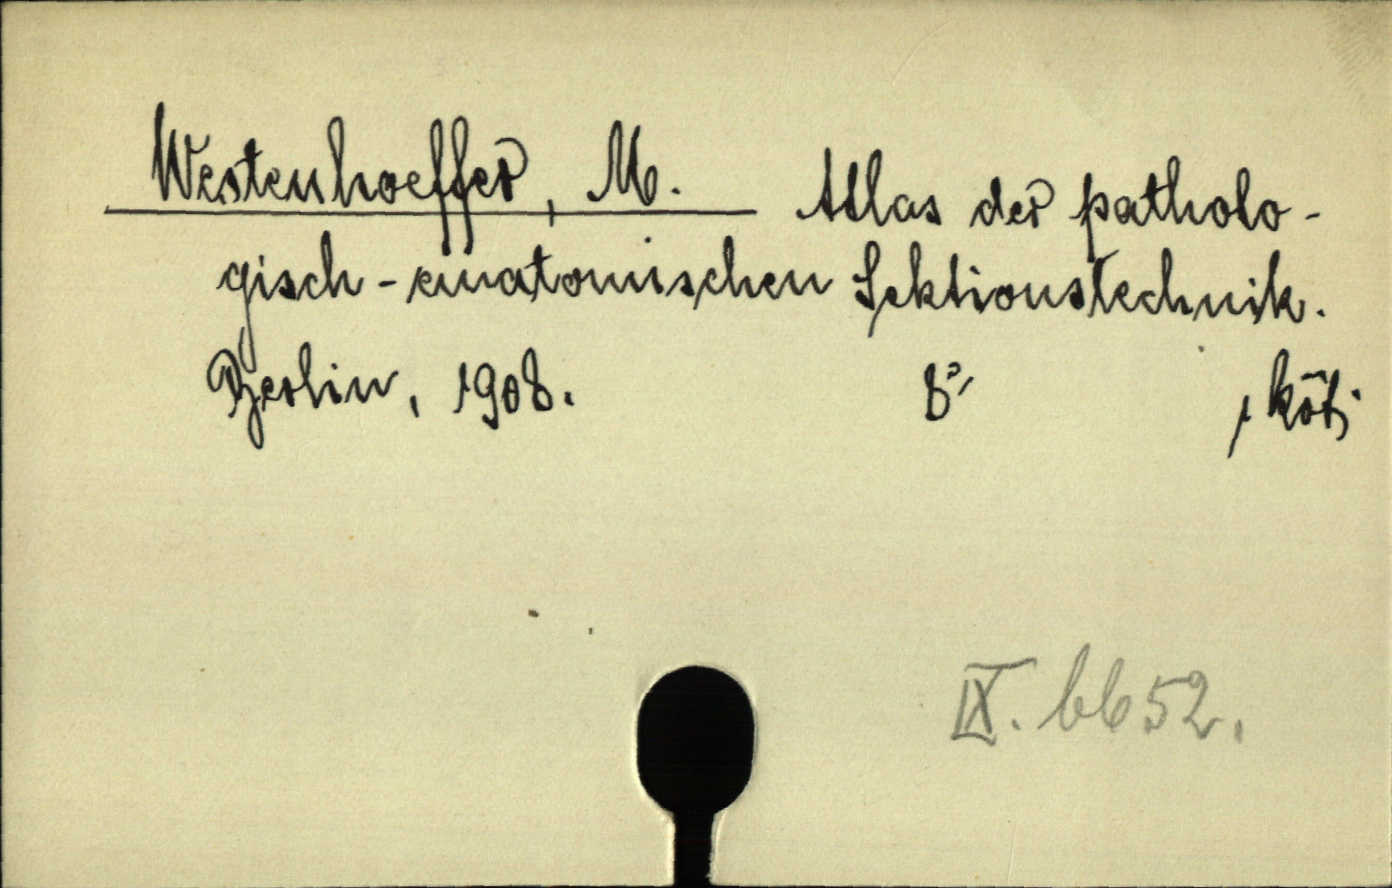 Westenhoeffer, M. Atlas der patholo-
gisch-anatomischen Sektionstechnik.
Berlin, 1908. 8° 1 köt;
IX. 6652.